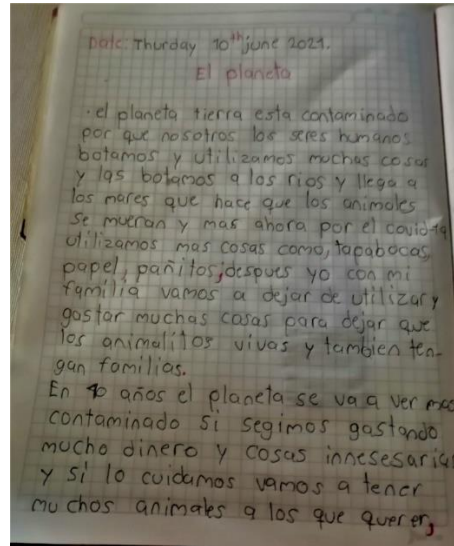 Date: Thurday 10th june 2021.
El planeta
. el planeta tierra esta contaminado
por que nosotros los seres humanos
botamos y utilizamos muchas cosas
y las botamos a los rios y llega a
los mares que hace que los animales
se mueran y mas ahora por el covid-19
utilizamos mas cosas como, tapabocas,
papel, pañitos, despues yo con mi
familia vamos a dejar de utilizar y
gastar muchas cosas para dejar que
los animalitos vivas y tambien ten-
gan familias.
En 40 años el planeta se va a ver mas
contaminado si segimos gastando
mucho dinero y cosas innesesarias
y si lo cuidamos vamos a tener
muchos animales a los que querer,